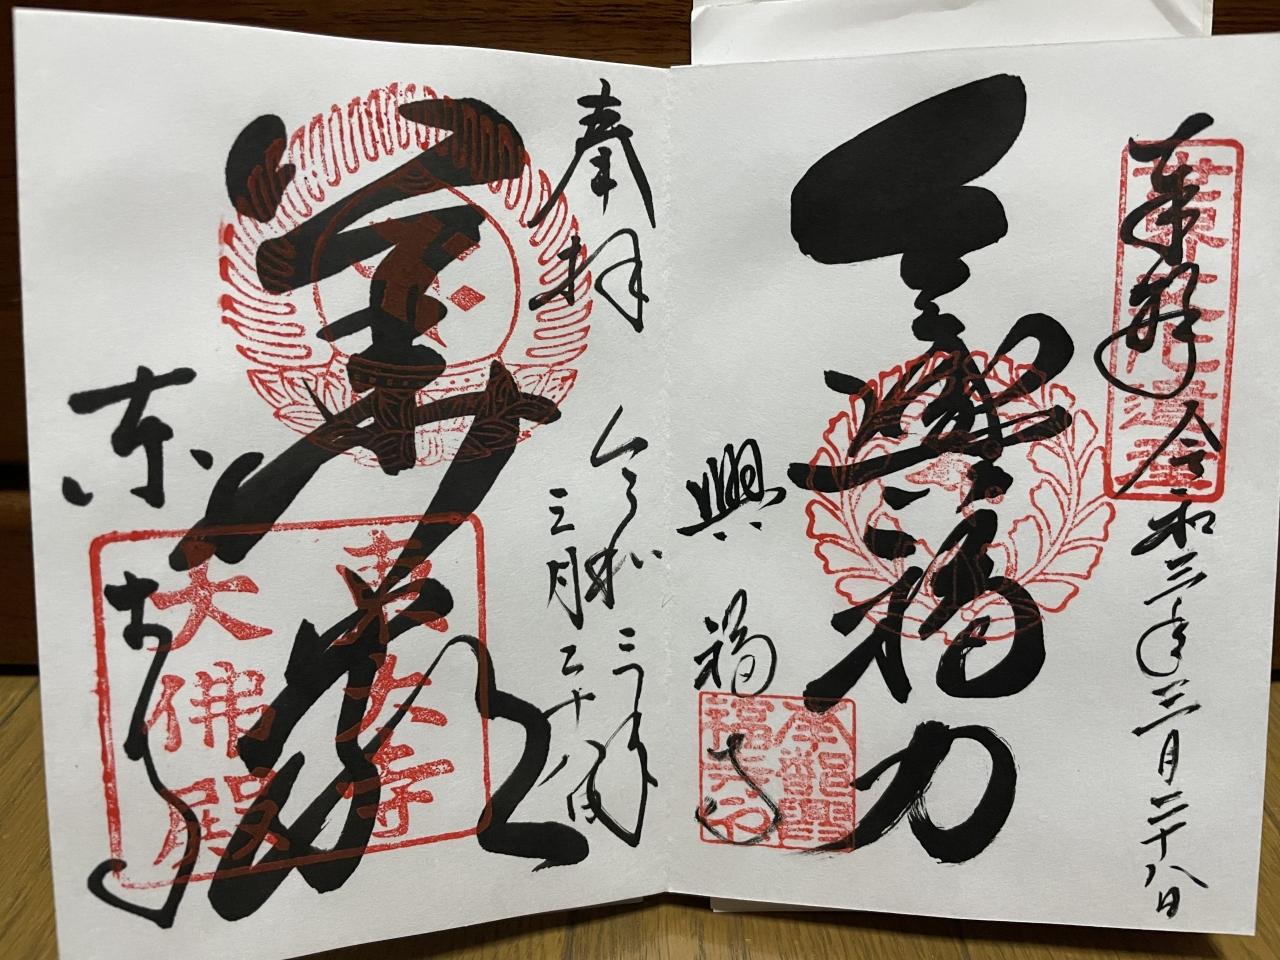 奉拝 令和三年三月二十八日
令興福力
興福寺
奉拝
令和三年
三月二十八日
華厳
東大寺
大佛殿
東大寺